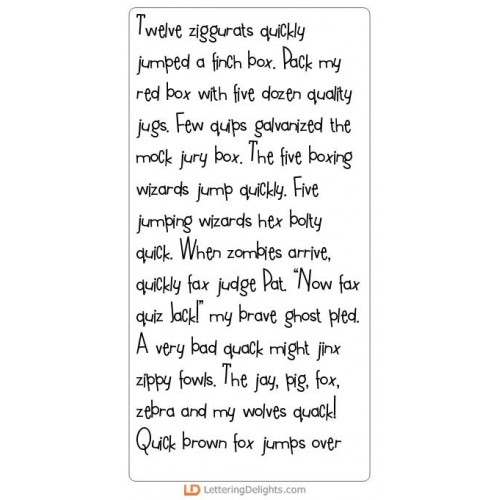 Twelve ziggurats quickly
jumped a finch box. Pack my
red box with five dozen quality
jugs. Few quips galvanized the
mock jury box. The five boxing
wizards jump quickly. Five
jumping wizards hex bolty
quick. When zombies arrive,
quickly fax judge Pat. "Now fax
quiz Jack!" my brave ghost pled.
A very bad quack might jinx
zippy fowls. The jay, pig, fox,
zebra and my wolves quack!
Quick brown fox jumps over
LD LetteringDelights.com